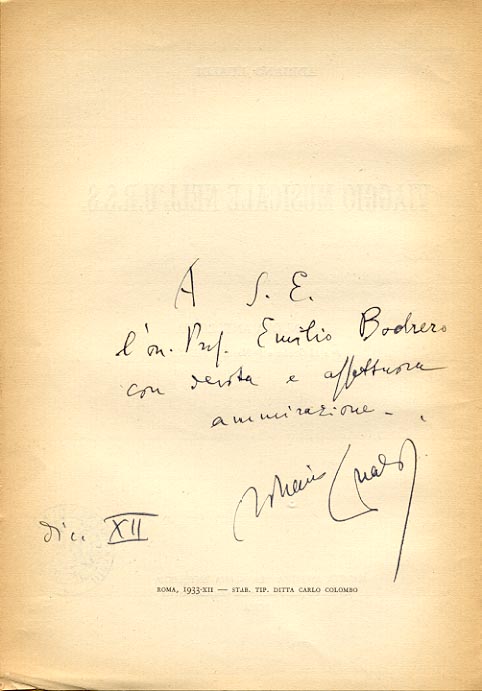 ADRIANO LUALDI
VIAGGIO MUSICALE NELL'U.R.S.S.
A S. E.
l'on. Prof. Emilio Bodrero
con devota e affettuosa
ammirazione -
Adriano Lualdi
dic. XII
ROMA, 1933-XII — STAB. TIP. DITTA CARLO COLOMBO